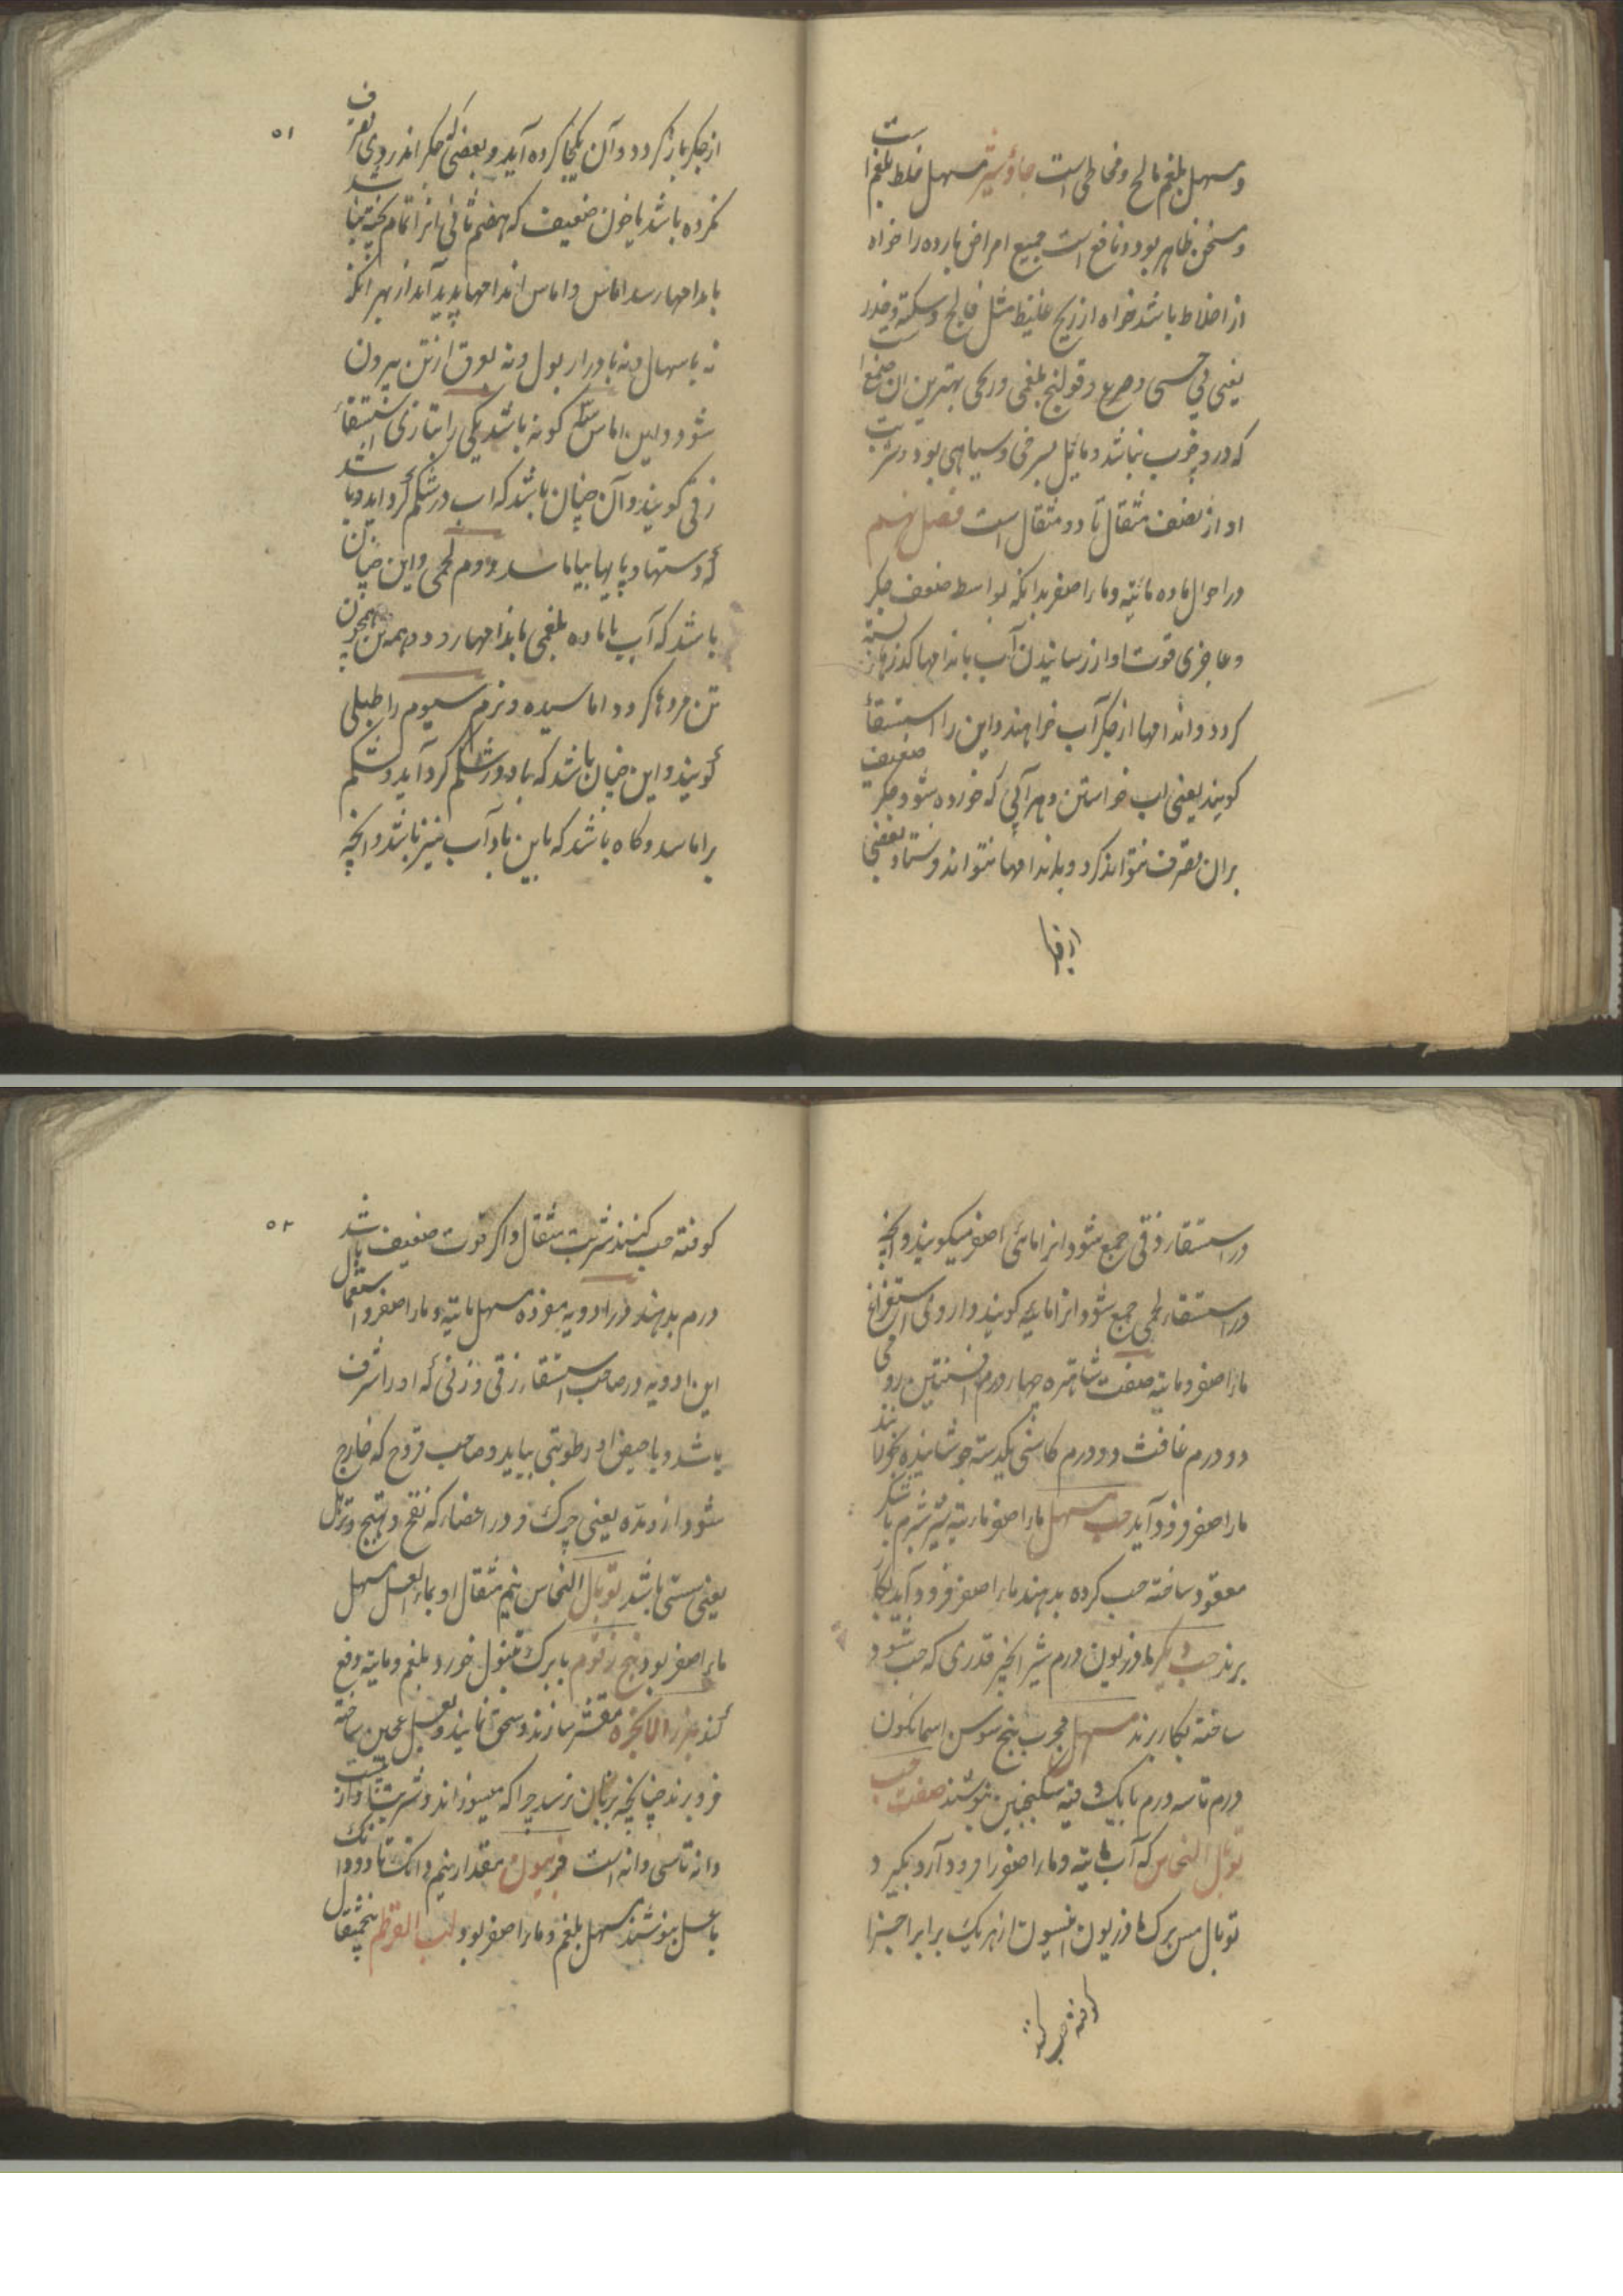 و مسهل بلغم مالح و مخاطی است جاؤشیر مسهل خلط بلغم است
و مسخن ظاهر بود و نافع است جمیع امراض بارده را خواه
از اخلاط باشد خواه از ریح غلیظ مثل فالج و سکته و خدر
یعنی بی حسی و صرع و قولنج بلغمی و ریحی بهترین ان صمغ است
که درو چوب نباشد و مائل بسرخی و سیاهی بود و شربت
او از نصف مثقال تا دو مثقال است فصل نهم
در احوال ماده مائیه و ماء اصفر بدانکه بواسطه ضعف جکر
و عاجزی قوت او از رسانیدن آب باندامها کذرها بسته
کردد و اندامها از جکر آب خواهند و این را استسقا
کویند یعنی اب خواستن و هر آبی که خورده شود جکر ضعیف
بران تصرف نتواند کرد و باندامها نتواند فرستاد بعضی
از جکر باز کردد و آن یکجا کرده آید و بعضی که جکر اندر وی تصرف
نکرده باشد یا خون ضعیف که هضم ثانی انرا تمام پخته نباشد
باندامها رسد اماس و اماس اندامها پدید آید از بهر انکه
نه باسهال و نه بادرار بول و نه بعرق از تن بیرون
شود و این اماس سه کونه باشد یکی را بتازی استسقاء
زقی کویند و آن چنان باشد که اب در شکم کرد اید و باشد
که دستها و پایها بیاماسد دوم لحمی و این چنان
باشد که آب یا ماده بلغمی باندامها رود و همه تن همچون
تن مردها کردد اماسیده و نرم سیوم را طبلی
کویند و این چنان باشد که باد در شکم کرد آید و شکم
براماسد و کاه باشد که با این باد آب نیز باشد و انچه
در استسقاء زقی جمع شود انرا مائی اصفر میکویند و انچه
در استسقاء لحمی جمع شود انرا مایه کویند داروی استفراغ
ماء اصفر و مایته صفت شاهتره چهار درم افسنتین رومی
دو درم غافث دو درم کاسنی یکدسته جوشانیده بخورانند
ماء اصفر فرود آید حب مسهل ماء اصفر مایته شیر شبرم با شکر
معقود ساخته حب کرده بدهند ماء اصفر فرود آید بکار
برند حب دیکر مازریون درم شیر انجیر قدری که حب شود
ساخته بکار برند مسهل مجرب بیخ سوسن اسمانکون
درم تا سه درم با یک وقیه سکنجبین بنوشند صفت حب
توبال النحاس که آب مایته و ماء اصفر را فرود آرد بکیرد
توبال مس برک مازریون انیسون از هر یک برابر اجزا
کوفته حب کنند شربت مثقال و اکر قوت ضعیف باشد
درم بدهند در ادویه مفرده مسهل مایته و ماء اصفر و استعمال
این ادویه در صاحب استسقاء زقی و زنی که او را نزف
باشد و یا حیض او رطوبتی بیاید و صاحب قروح که خارج
شود ازو مده یعنی چرک و در اعضاء که نفخ و تهبج و ترهل
یعنی سستی باشد توبال النحاس نیم مثقال او بماء العسل مسهل
ماء اصفر بود بیخ زقوم با برک تنبول خورد بلغم و مایته دفع
کند بزر الانجره مقشر سازند و سحق نمایند و بعسل عجین ساخته
فرو برند چنانچه بزبان نرسد چرا که میسوزاند و شربت او از بیست
دانه تا سی دانه است فربیون مقدار نیم دانک تا دو دانک
با عسل بنوشند مسهل بلغم و ماء اصفر بود لب القرطم پنجمثقال